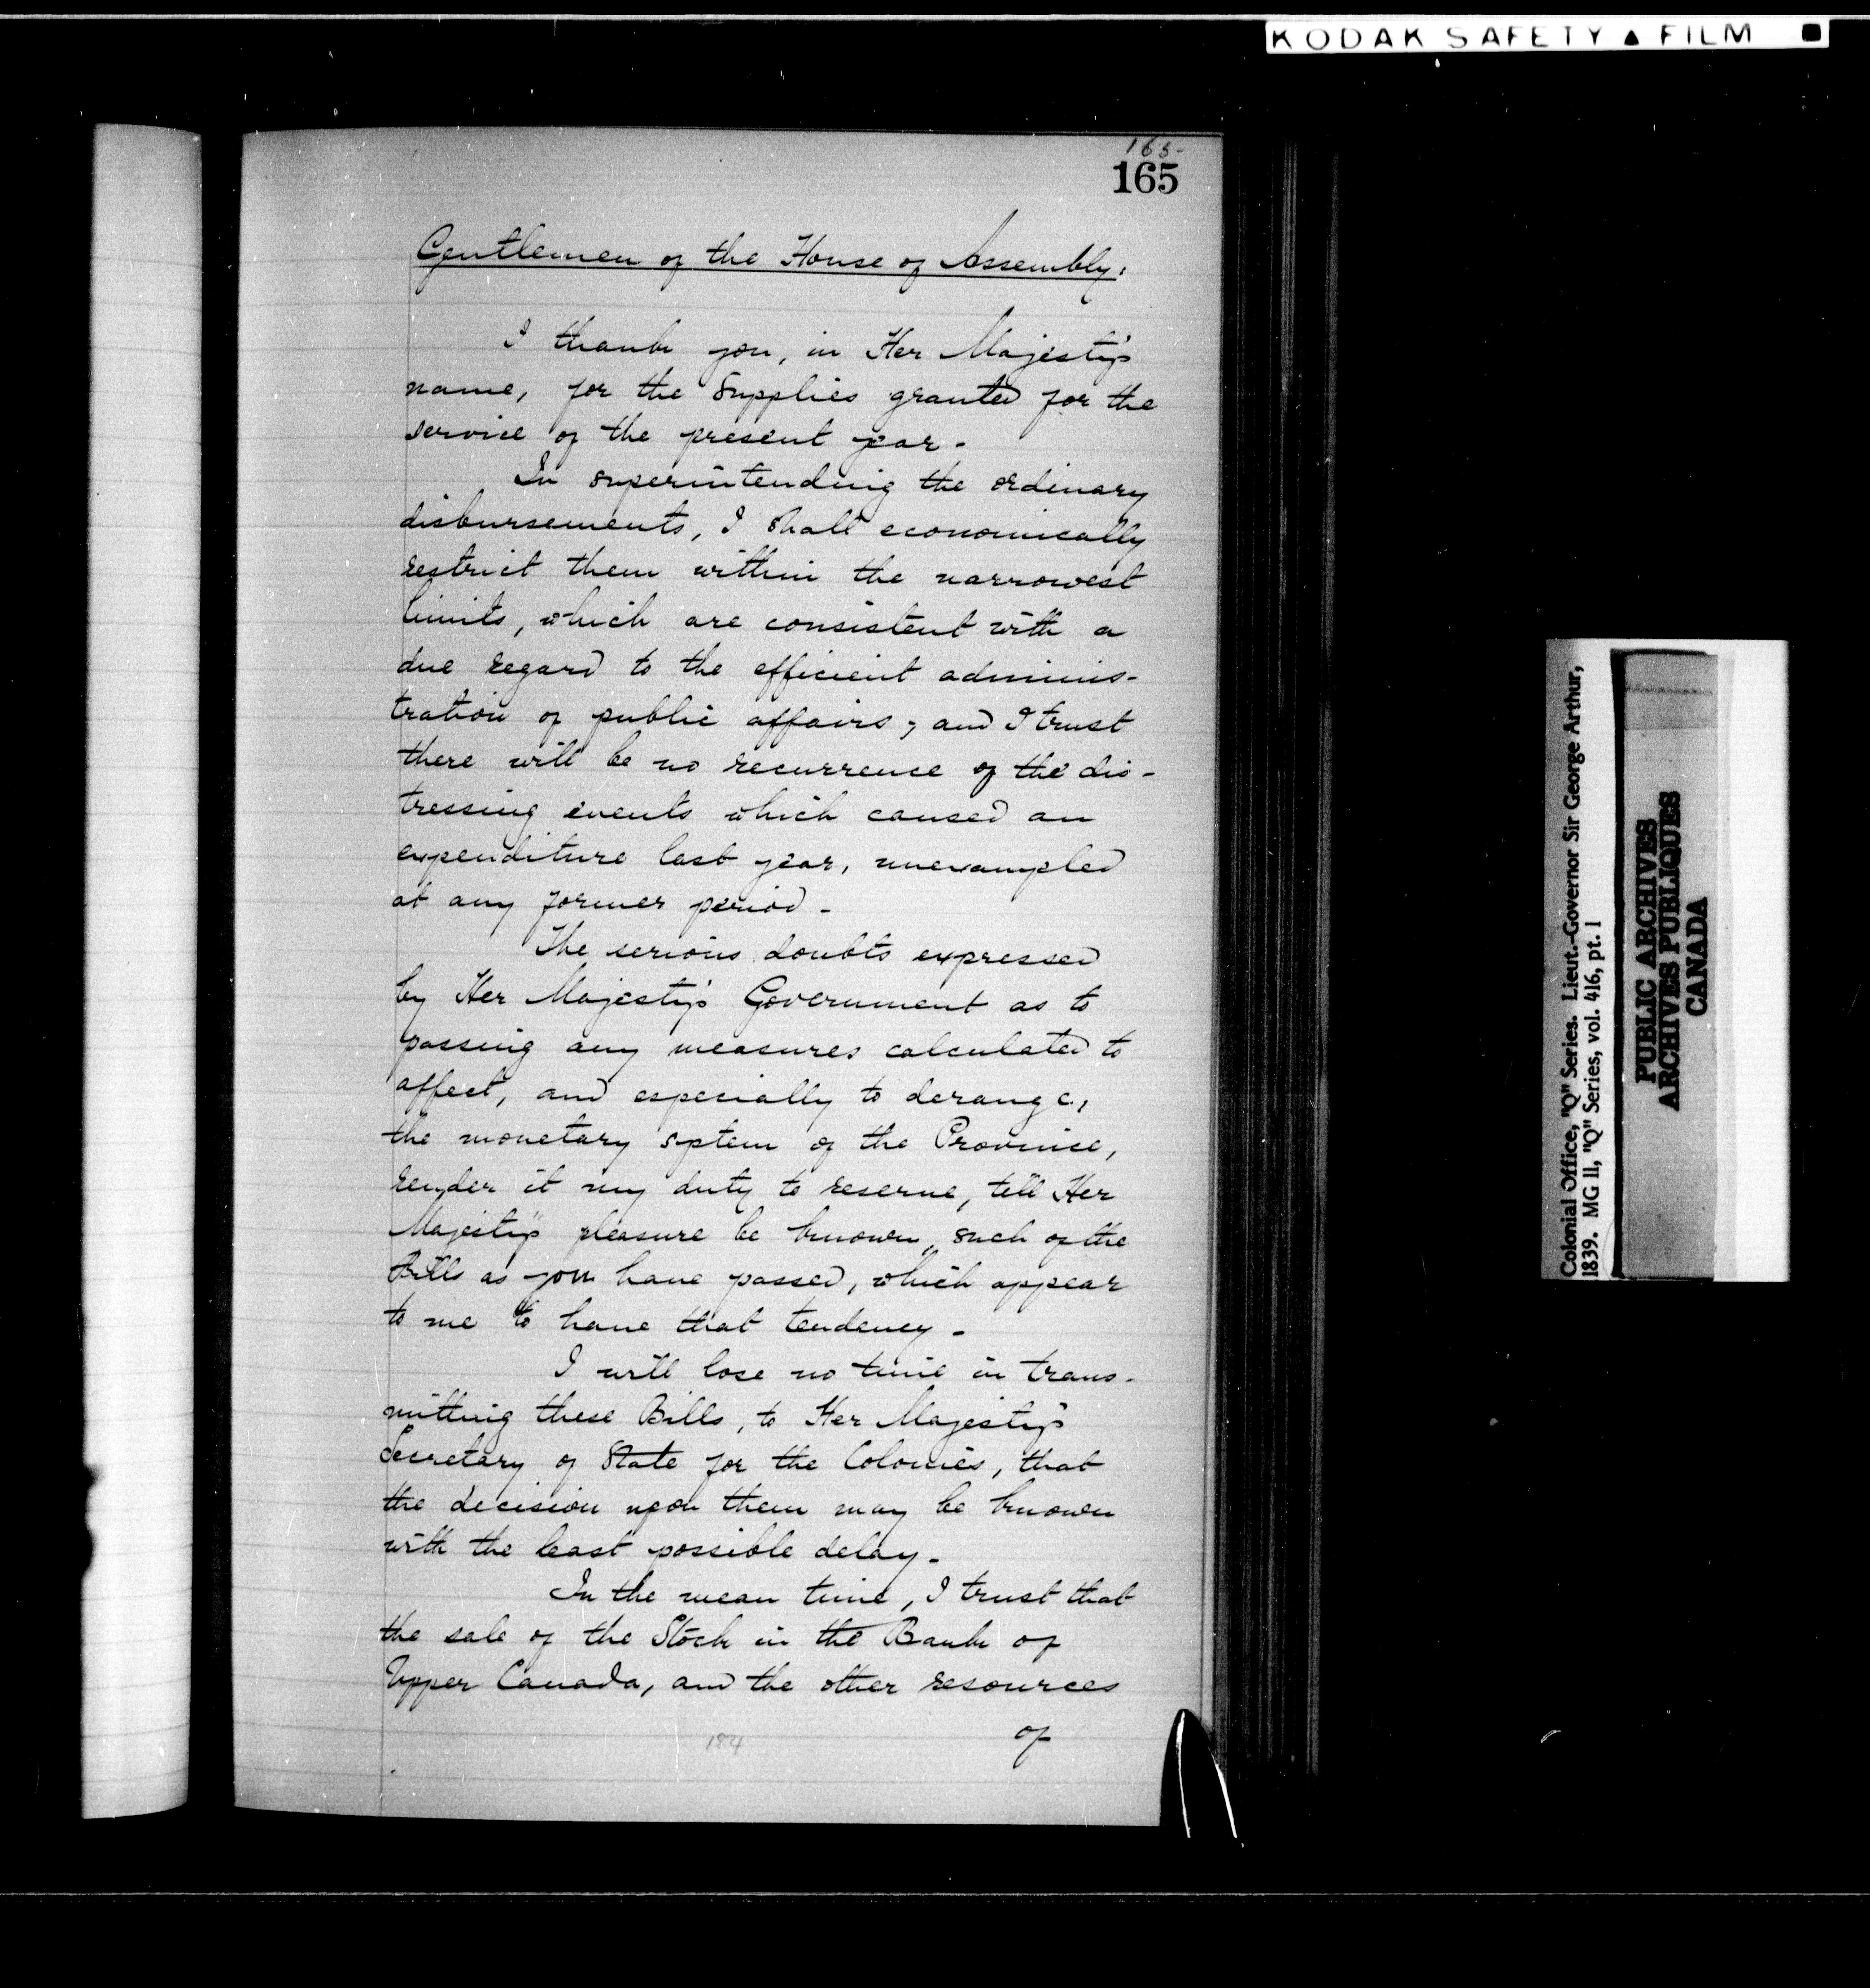 KODAK SAFETY FILM
165-
165
Gentlemen of the House of Assembly,
I thank you, in Her Majesty's
name, for the Supplies granted for the
service of the present year -
In superintending the ordinary
disbursements, I shall economically
restrict them within the narrowest
limits, which are consistent with a
due regard to the efficient adminis-
tration of public affairs, and I trust
there will be no recurrence of the dis-
tressing events which caused an
expenditure last year, unexampled
at any former period -
The serious doubts expressed
by Her Majesty's Government as to
passing any measures calculated to
affect, and especially to derange,
the monetary system of the Province,
render it my duty to reserve, till Her
Majesty's pleasure be known, such of the
Bills as you have passed, which appear
to me to have that tendency -
I will lose no time in trans-
mitting these Bills, to Her Majesty's
Secretary of State for the Colonies, that
the decision upon them may be known
with the least possible delay -
In the mean time, I trust that
the sale of the Stock in the Bank of
Upper Canada, and the other resources
of
184
Colonial Office, "Q" Series. Lieut.-Governor Sir George Arthur,
1839. MG 11, "Q" Series, vol. 416, pt. 1
PUBLIC ARCHIVES
ARCHIVES PUBLIQUES
CANADA